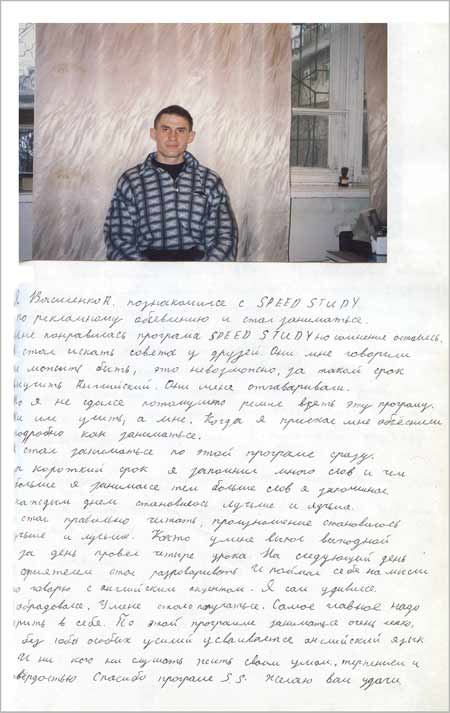 Я Василенко А. познакомился с SPEED STUDY
по рекламному обевлению и стал заниматься.
Мне понравилась програма SPEED STUDY но сомнения остались.
стал искать совета у друзей. Они мне говорили
может быть, это невозможно, за такой срок
выучить Английский. Они меня отгаваривали.
Но я не сдолся потомушто решил взять эту програму.
им учить, а мне. Когда я приехал мне обяснили
подробно как заниматься.
стал заниматься по этой програме сразу.
короткий срок я запомнил много слов и чем
больше я занимался тем больше слов я запоминал.
каждым днем становилось лучше и лучше.
стал правильно читать, произношение становилось
лучше и лучше. Както уменя выпал выходной
за день провел четыре урока. На следующий день
приятелем стал разговаривать. И поймал себя на мысли
говорю с английским акцентом. Я сам удивился.
обрадовался. Уменя стало получаться. Самое главное надо
верить в себя. По этой программе заниматься очень легко,
без особых усилий усваивается английский язык
И ни кого ни слушать жить своим умом, терпением и
твёрдостью Спасибо програме S.S. Желаю вам удачи